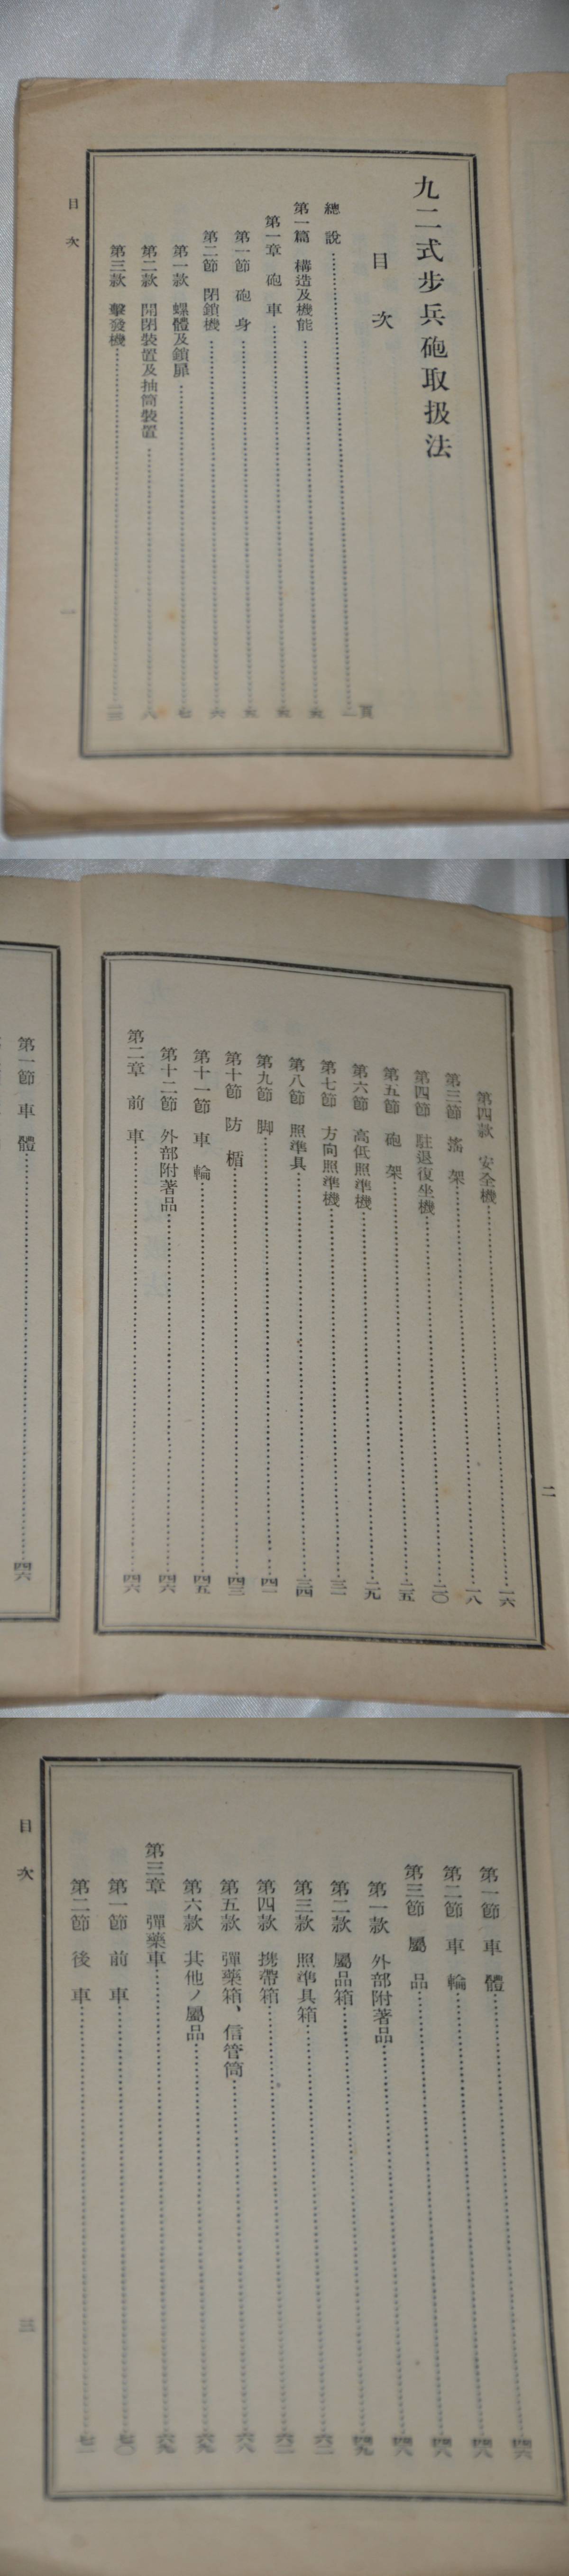 九二式步兵砲取扱法
目次
頁
總說……一
第一篇 構造及機能……五
第一章 砲車……五
第一節 砲身……五
第二節 閉鎖機……六
第一款 螺體及鎖扉……七
第二款 開閉裝置及抽筒裝置……八
第三款 擊發機……一三
目次
一
二
第四款 安全機……一六
第三節 搖架……一八
第四節 駐退復坐機……二〇
第五節 砲架……二五
第六節 高低照準機……二九
第七節 方向照準機……三一
第八節 照準具……三四
第九節 脚……四一
第十節 防楯……四三
第十一節 車輪……四五
第十二節 外部附著品……四六
第二章 前車……四六
第一節 車體……四六
第一節 車體……四六
第二節 車輪……四八
第三節 屬品……四八
第一款 外部附著品……四八
第二款 屬品箱……四九
第三款 照準具箱……六二
第四款 携帶箱……六二
第五款 彈藥箱、信管筒……六八
第六款 其他ノ屬品……六九
第三章 彈藥車……六九
第一節 前車……七〇
第二節 後車……七一
目次
三